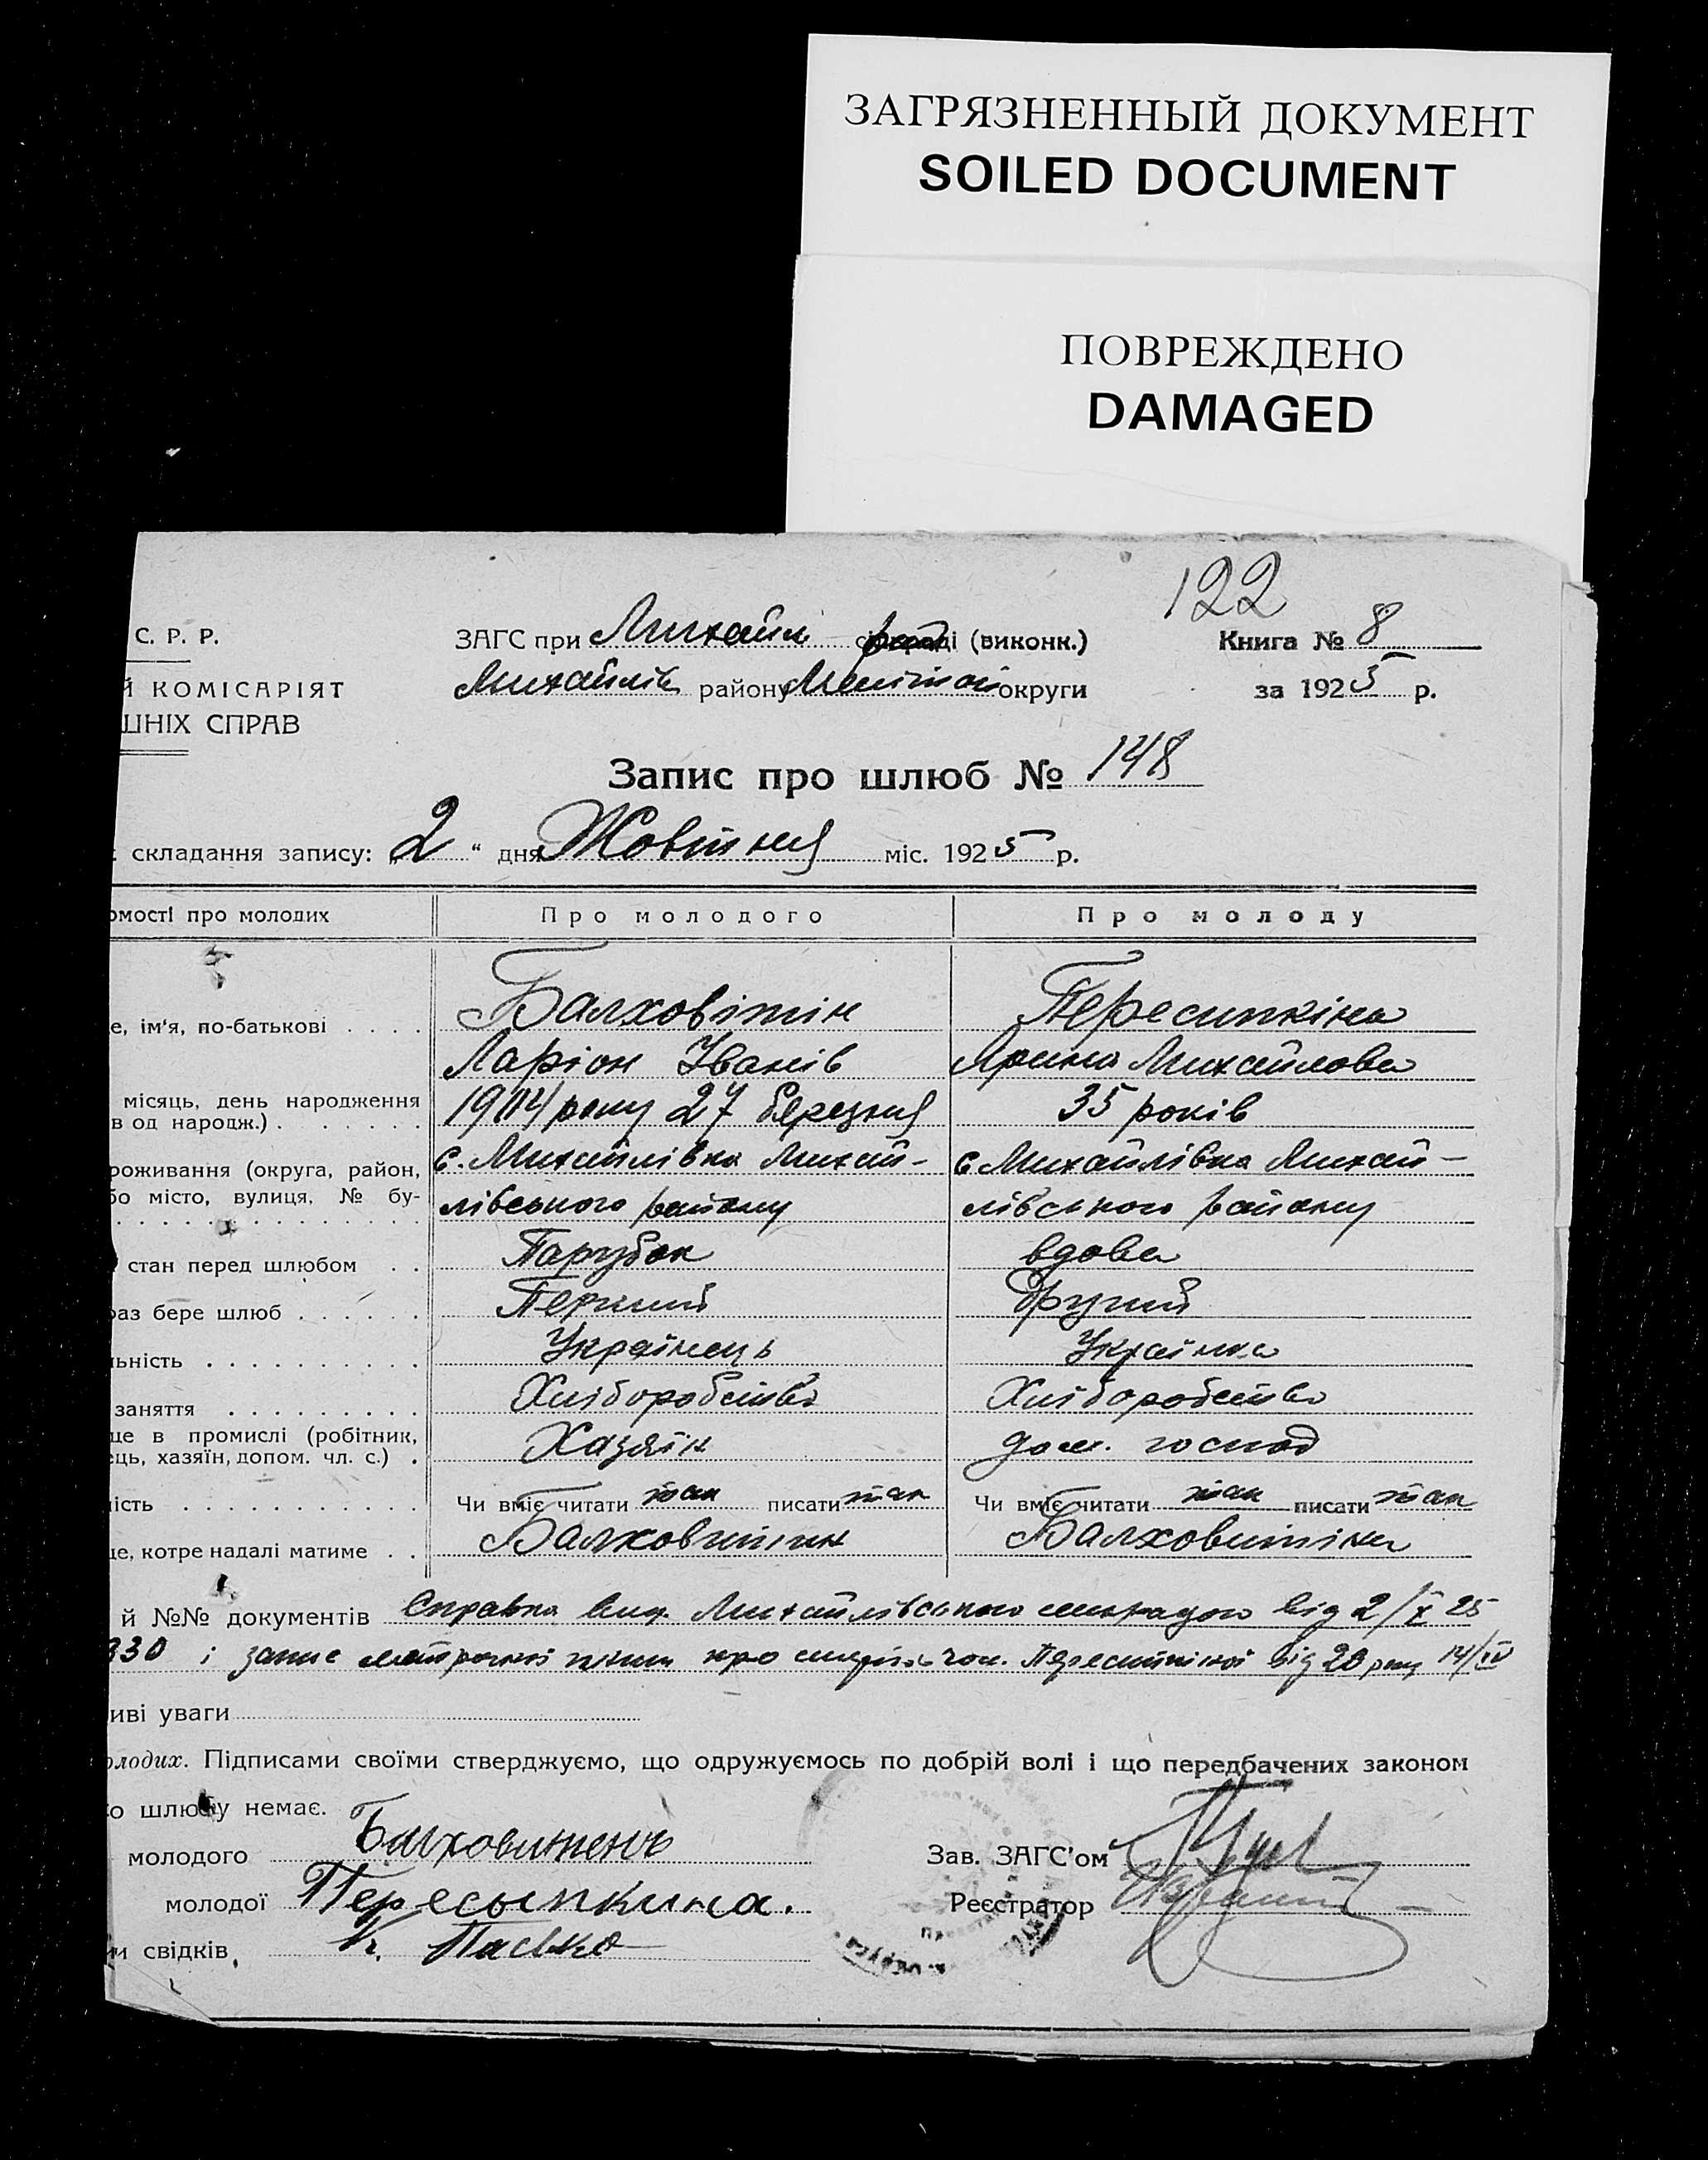 ЗАГРЯЗНЕННЫЙ ДОКУМЕНТ
SOILED DOCUMENT
ПОВРЕЖДЕНО
DAMAGED
122
С. Р. Р.
ЗАГС при Михайл (виконк.)
Книга № 8
Й КОМІСАРІЯТ
Михайлів району Мелітоп округи
за 1925 р.
ШНІХ СПРАВ
Запис про шлюб № 148
складання запису: „2“ дня Жовтня міс. 1925 р.
омості про молодих
Про молодого
Про молоду
е, ім'я, по-батькові . . . .
Балховітін
Пересипкіна
Ларіон Іванів
Михайлова
місяць, день народження
в од народж.) . . . . . .
року 27 березня
35 років
роживання (округа, район,
бо місто, вулиця, № бу-
с. Михайлівка Михай-
с Михайлівка Михай-
лівського району
лівського району
стан перед шлюбом . .
Парубок
вдова
раз бере шлюб . . . . . .
Перший
Другий
льність . . . . . . . . . .
Українець
Українка
заняття . . . . . . . . .
Хліборобство
Хліборобство
це в промислі (робітник,
ець, хазяїн, допом. чл. с.) .
Хазяїн
дом. господ
ність . . . . . . . . . . .
Чи вміє читати так писати так
Чи вміє читати так писати так
це, котре надалі матиме . .
Балховитин
Балховитіна
й №№ документів Справка Михайлівського від 2/X 25
330 і запис про чол. від 20 року 14/IV
иві уваги
олодих. Підписами своїми стверджуємо, що одружуємось по добрій волі і що передбачених законом
о шлюбу немає.
молодого
Зав. ЗАГС'ом
молодої Пересыпкина.
Реєстратор
и свідків, Пасько